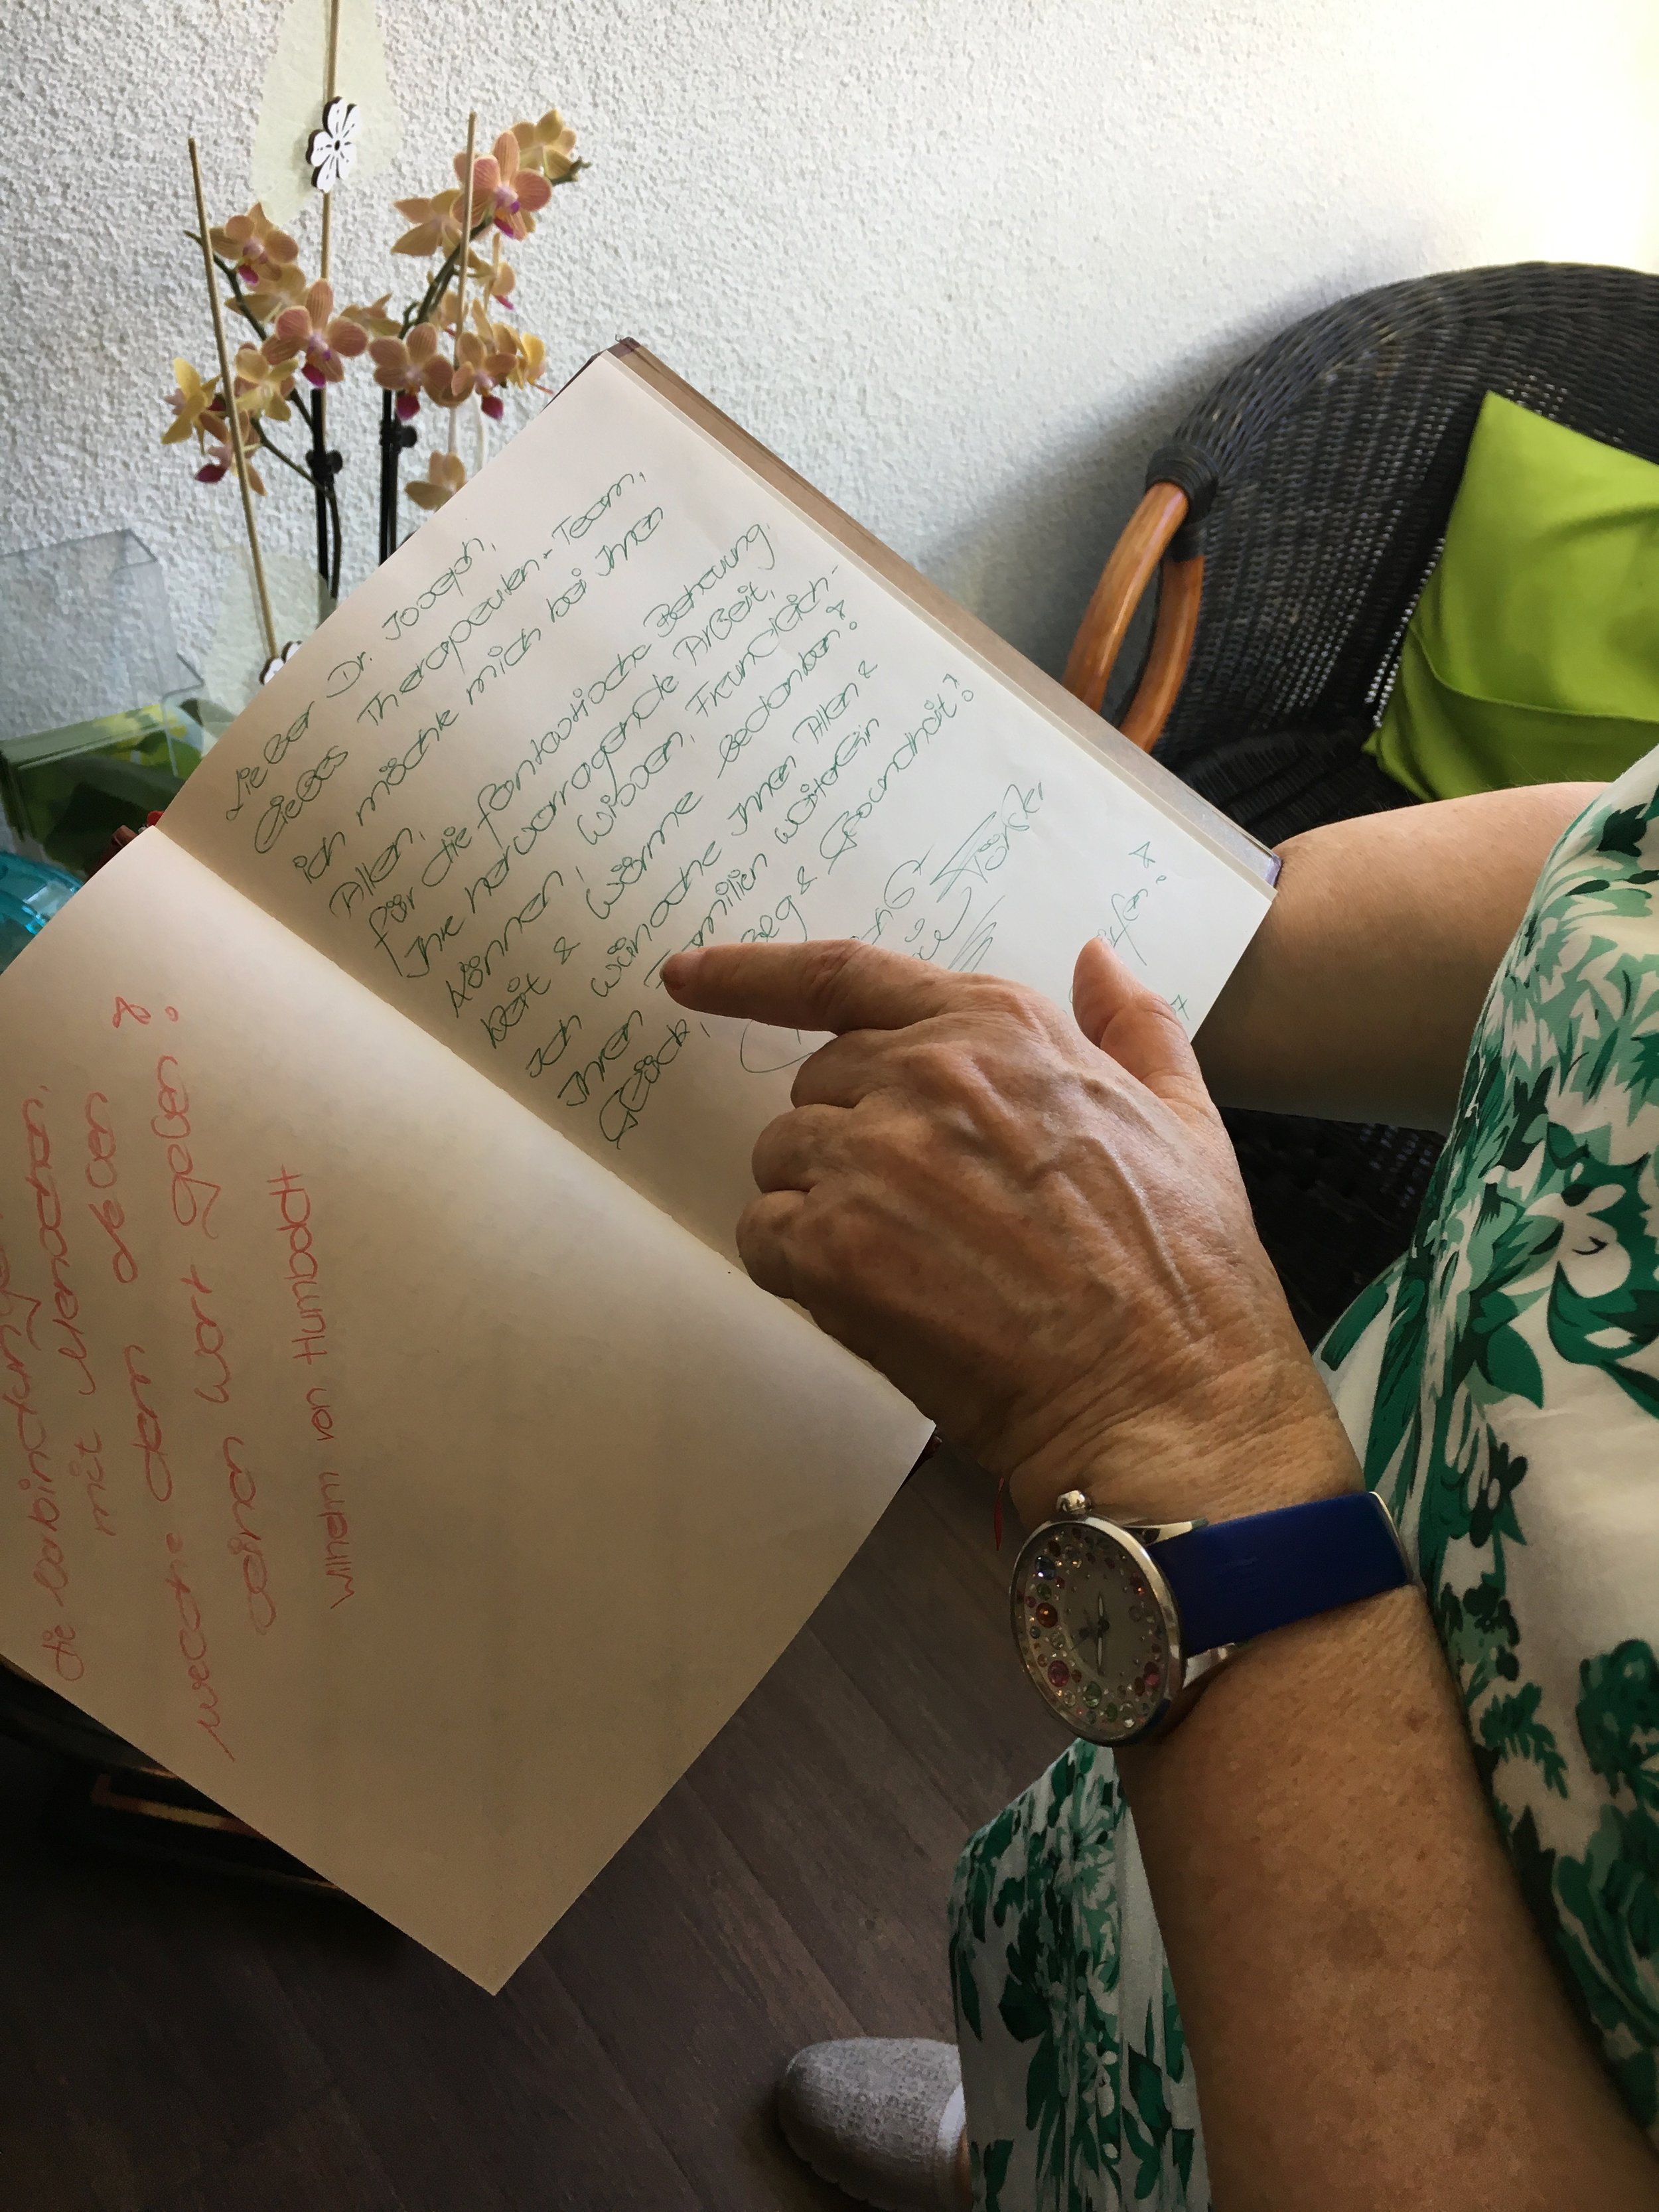 die Verbindungen
mit Menschen,
welche dem Leben
seinen Wert geben!
Wilhelm von Humboldt
Lieber Dr. Joseph,
liebes Therapeuten-Team,
ich möchte mich bei Ihnen
Allen,
für die fantastische Betreuung.
Ihre hervorragende Arbeit,
Können, Wissen, Freundlich-
keit & Wärme bedanken!
Ich wünsche Ihnen Allen &
Ihren Familien weiterhin
Glück, & Gesundheit!